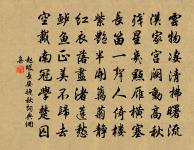 雲物淒清拂曙流
漢家宮闕動高秋
殘星幾點雁橫塞
長笛一聲人倚樓
紫艷半開籬菊靜
紅衣落盡渚蓮愁
鱸魚正美不歸去
空戴南冠學楚囚
趙嘏長安晚秋詞典網
集